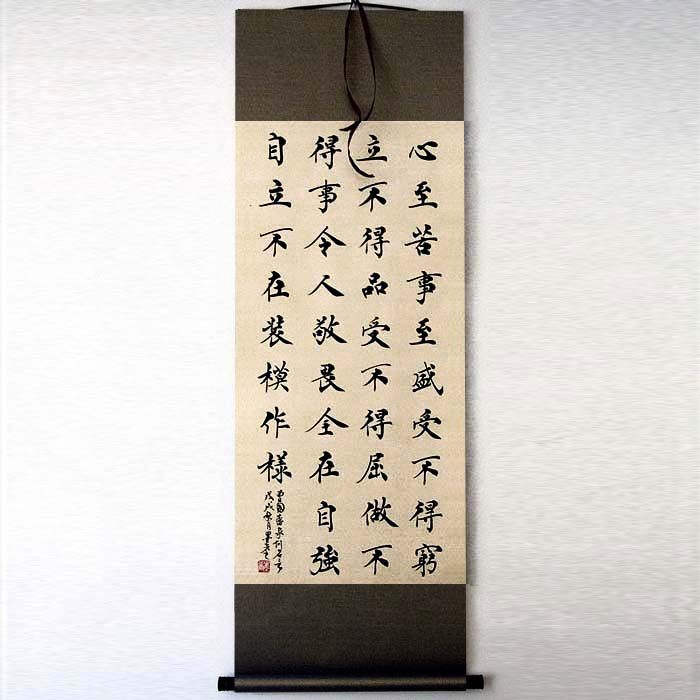 心至苦事至盛受不得窮
立不得品受不得屈做不
得事令人敬畏全在自強
自立不在裝模作樣